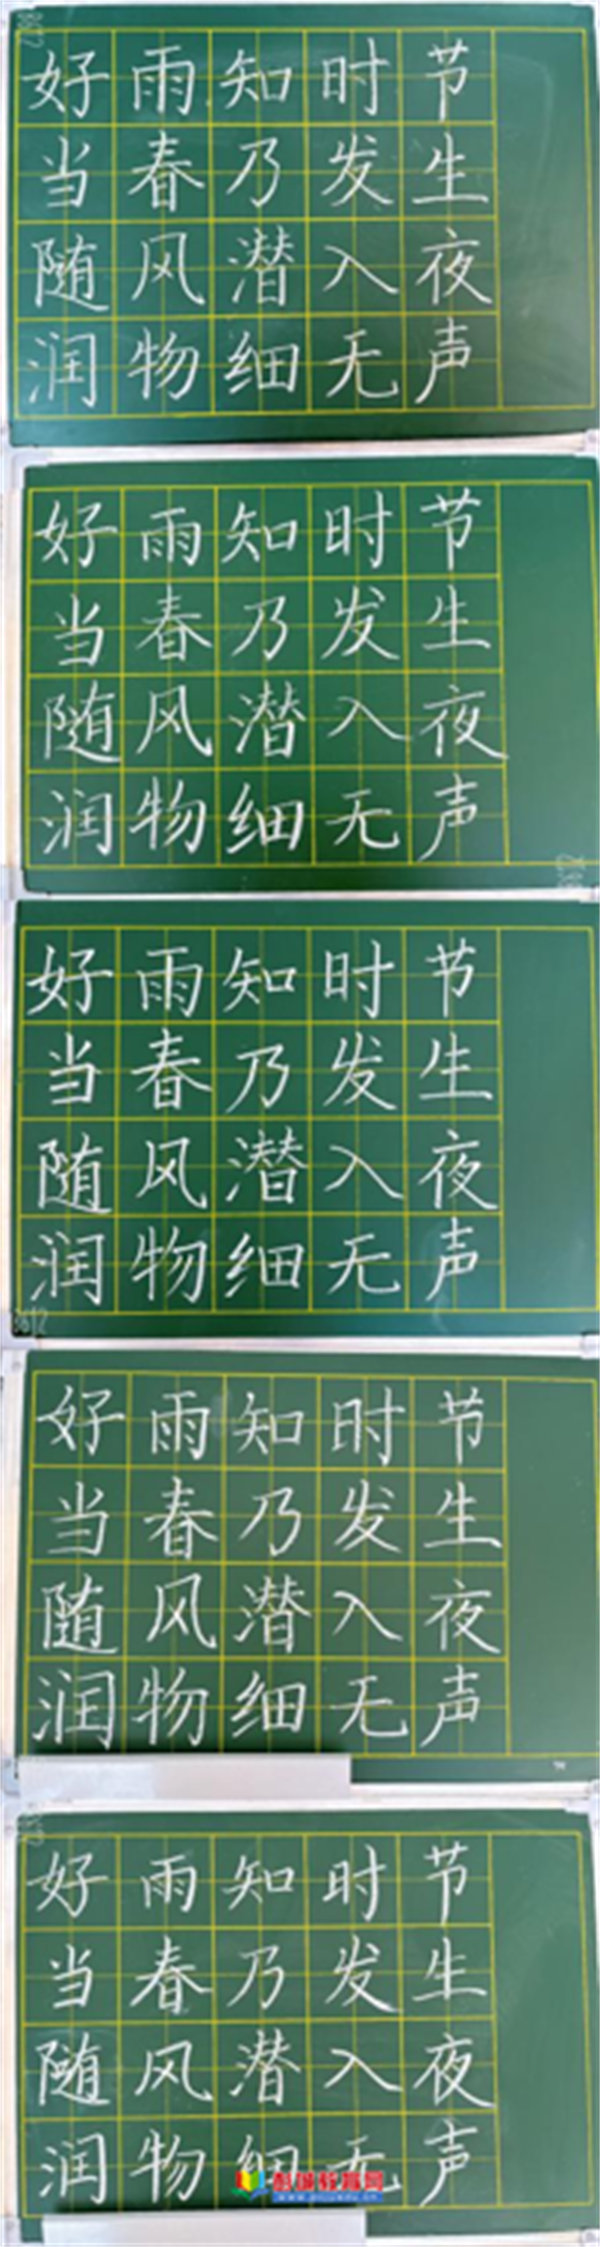 好雨知时节
当春乃发生
随风潜入夜
润物细无声
好雨知时节
当春乃发生
随风潜入夜
润物细无声
好雨知时节
当春乃发生
随风潜入夜
润物细无声
3612
好雨知时节
当春乃发生
随风潜入夜
润物细无声
好雨知时节
当春乃发生
随风潜入夜
润物细无声